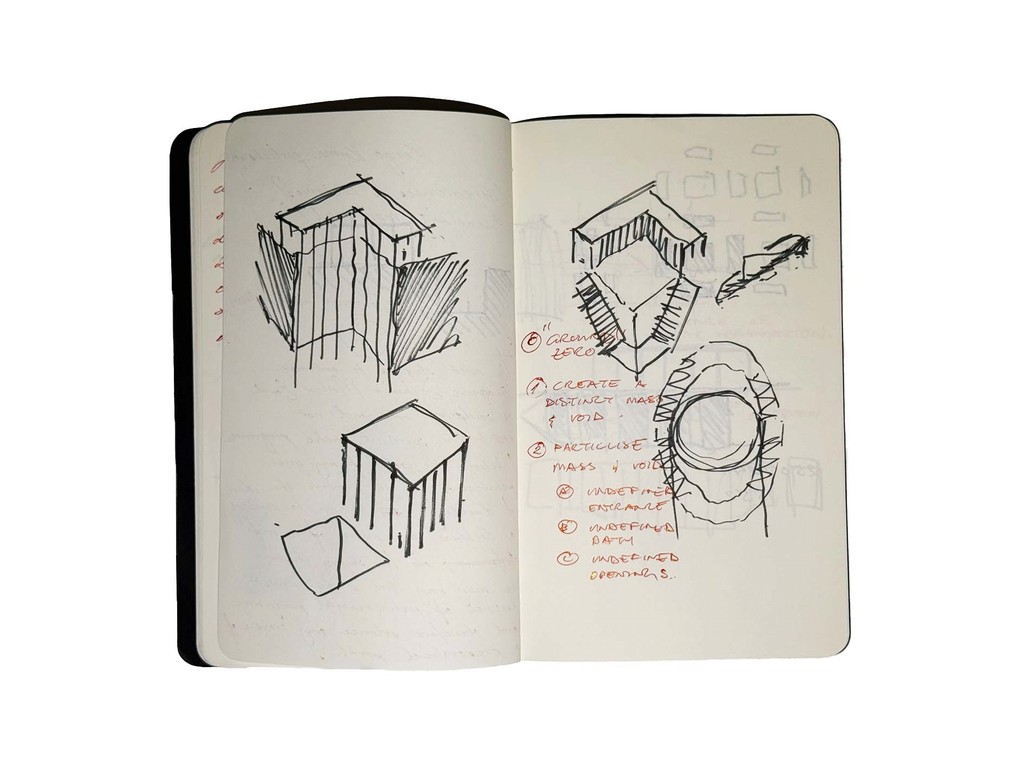 ⓪ "GROUND
ZERO"
① CREATE A
DISTINCT MASS
& VOID.
② PARTICLISE
MASS & VOID
Ⓐ UNDEFINED
ENTRANCE
Ⓑ UNDEFINED
PATH
Ⓒ UNDEFINED
OPENINGS..